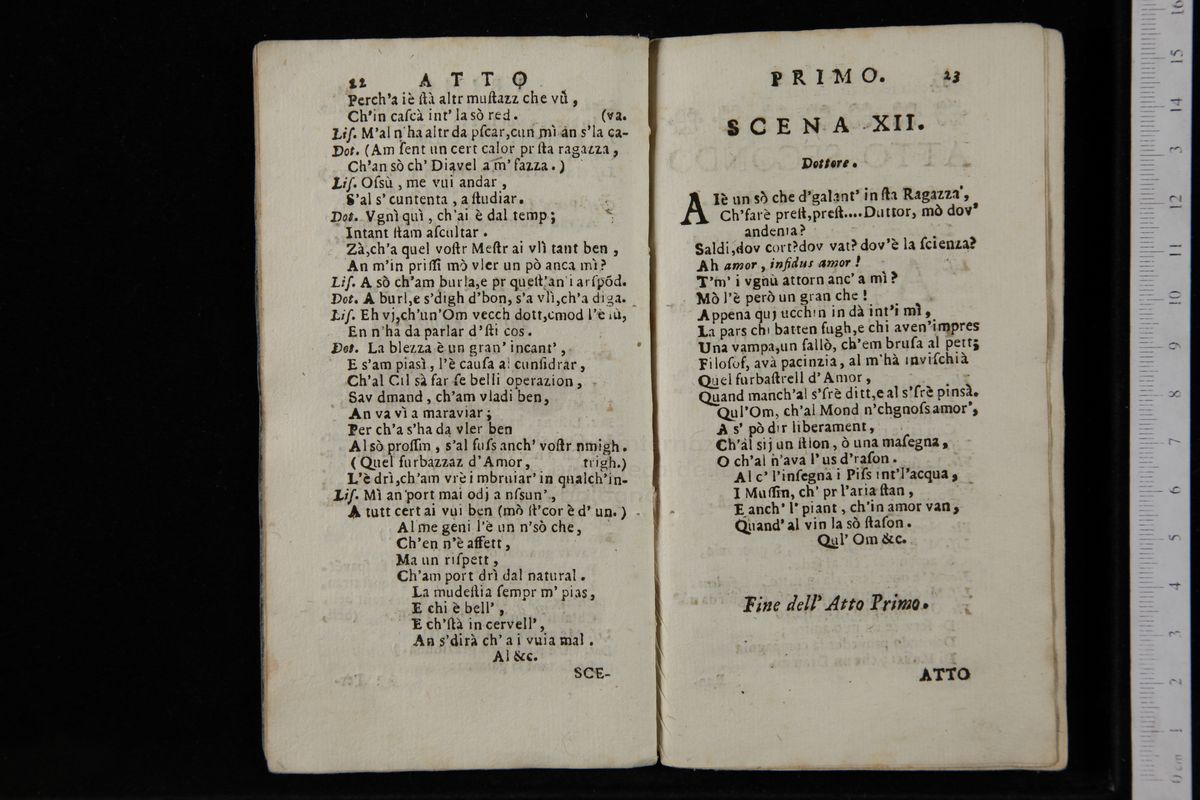 22 ATTO
Perch'a iè ſtà altr muſtazz che vù,
Ch'in caſcà int' la sò red. (va.
Liſ. M'al n'ha altr da pſcar,cun mì an s'la ca-
Dot. (Am ſent un cert calor pr ſta ragazza,
Ch'an sò ch' Diavel a m' fazza.)
Liſ. Oſsù, me vui andar,
S'al s' cuntenta, a ſtudiar.
Dot. Vgnì quì, ch'ai è dal temp;
Intant ſtam aſcultar.
Zà,ch'a quel voſtr Meſtr ai vlì tant ben,
An m'in priſſi mò vler un pò anca mì?
Liſ. A sò ch'am burla,e pr queſt'an'i arſpõd.
Dot. A burl,e s'digh d'bon, s'a vlì,ch'a diga.
Liſ. Eh vj,ch'un'Om vecch dott,cmod l'è lù,
En n'ha da parlar d'ſti cos.
Dot. La blezza è un gran' incant',
E s'am piasì, l'è cauſa al cunſidrar,
Ch'al Cil sà far ſe belli operazion,
Sav dmand, ch'am vladi ben,
An va vì a maraviar;
Per ch'a s'ha da vler ben
Al sò proſſim, s'al fuſs anch' voſtr nmigh.
(Quel furbazzaz d'Amor, trigh.)
L'è drì,ch'am vrè imbruiar' in qualch'in-
Liſ. Mì an'port mai odj a nſsun',
A tutt cert ai vui ben (mò ſt'cor è d' un.)
Al me geni l'è un n'sò che,
Ch'en n'è affett,
Ma un riſpett,
Ch'am port drì dal natural.
La mudeſtia ſempr m' pias,
E chi è bell',
E ch'ſtà in cervell',
An s'dirà ch' a i vuia mal.
Al &c.
SCE-
PRIMO. 23
SCENA XII.
Dottore.
A Iè un sò che d'galant' in ſta Ragazza',
Ch'farè preſt,preſt....Duttor, mò dov'
andenia?
Saldi,dov cort?dov vat? dov'è la ſcienza?
Ah amor, infidus amor!
T'm' i vgnù attorn anc' a mì?
Mò l'è però un gran che!
Appena quj ucchin in dà int'i mì,
La pars chi batten fugh,e chi aven'impres
Una vampa,un fallò, ch'em bruſa al pett;
Filoſof, avà pacinzia, al m'hà inviſchià
Quel furbaſtrell d'Amor,
Quand manch'al s'frè ditt,e al s'frè pinsà.
Qul'Om, ch'al Mond n'chgnoſs amor',
A s' pò dir liberament,
Ch'àl sij un ſtion, ò una maſegna,
O ch'al n'ava l'us d'raſon.
Al c' l'inſegna i Piſs int'l'acqua,
I Muſſin, ch' pr l'aria ſtan,
E anch' l' piant, ch'in amor van,
Quand'al vin la sò ſtaſon.
Qul' Om &c.
Fine dell' Atto Primo.
ATTO